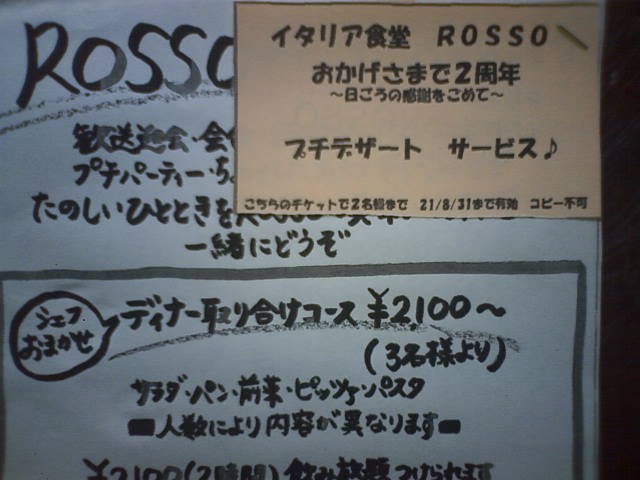 ROSSO
イタリア食堂 ROSSO
おかげさまで2周年
～日ごろの感謝をこめて～
プチデザート サービス♪
こちらのチケットで2名様まで 21/8/31まで有効 コピー不可
歓送迎会・会
プチパーティー・ち
たのしいひとときを
一緒にどうぞ
シェフ
おまかせ
ディナー取り合けコース ¥2,100～
(3名様より)
サラダ・パン・前菜・ピッツァ・パスタ
■人数により内容が異なります■
¥2100(2時間)飲み放題つけられます